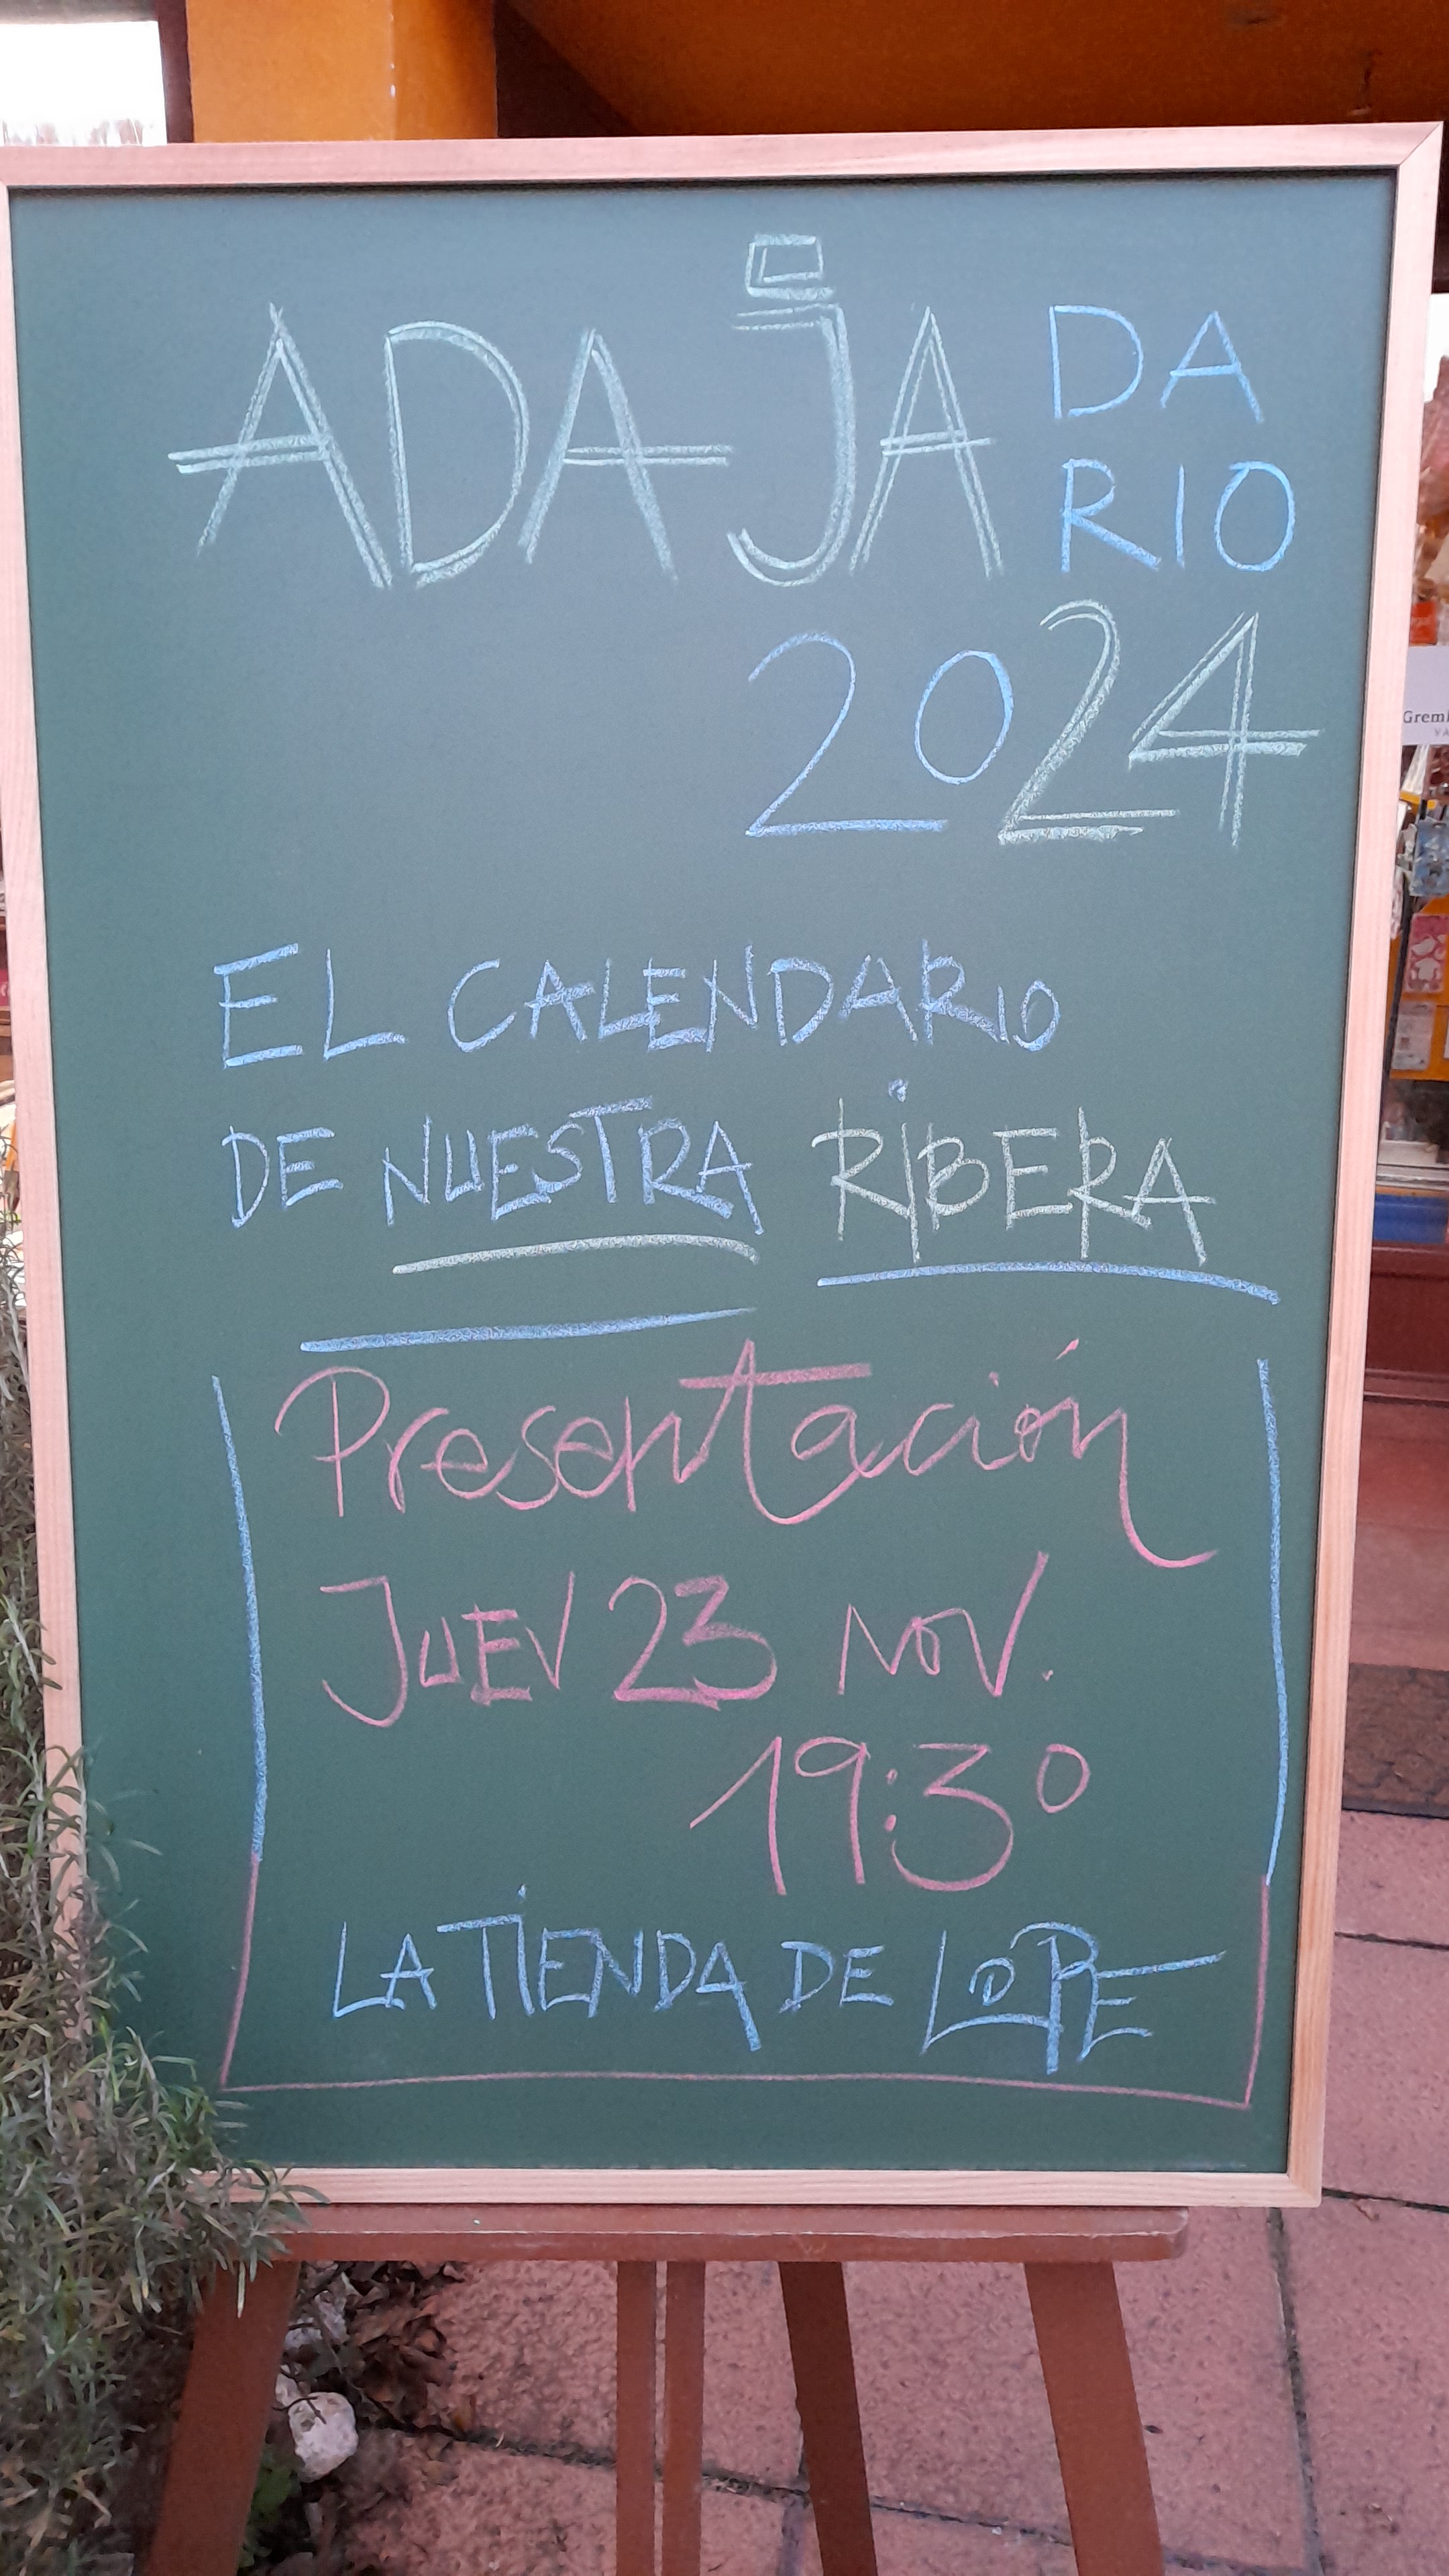 ADAJA DA
RIO
2024
EL CALENDARIO
DE NUESTRA RIBERA
Presentación
JUEV 23 NOV.
19:30
LA TIENDA DE LOPE